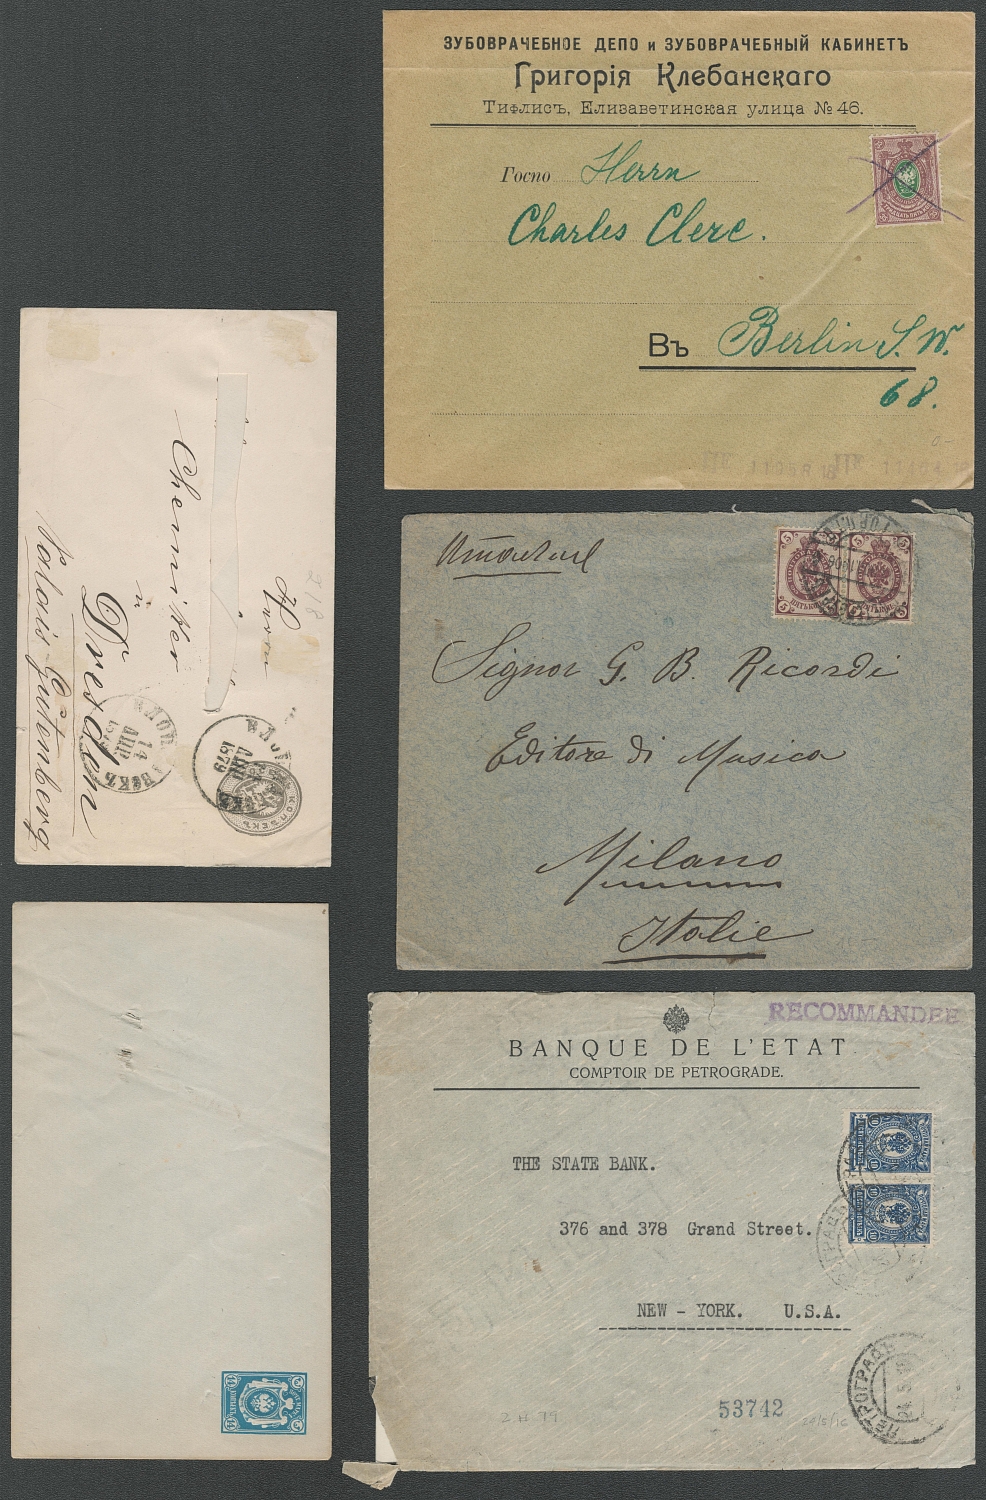 ЗУБОВРАЧЕБНОЕ ДЕПО и ЗУБОВРАЧЕБНЫЙ КАБИНЕТЪ
Григорія Клебанскаго
Тифлисъ, Елизаветинская улица № 46.
Госпо Herrn
Charles Clerc.
Въ Berlin S. W.
68.
218
Herrn
Chemiker
in
Dresden
14
АПР
1879
КОПѢЕКЪ
Signor G. B. Ricordi
Editore di Musica
Milano
Italie
5 5
RECOMMANDEE
BANQUE DE L'ETAT
COMPTOIR DE PETROGRADE.
THE STATE BANK.
376 and 378 Grand Street.
NEW - YORK. U.S.A.
10
10
ПЕТРОГРАДЪ
53742
24/5/16